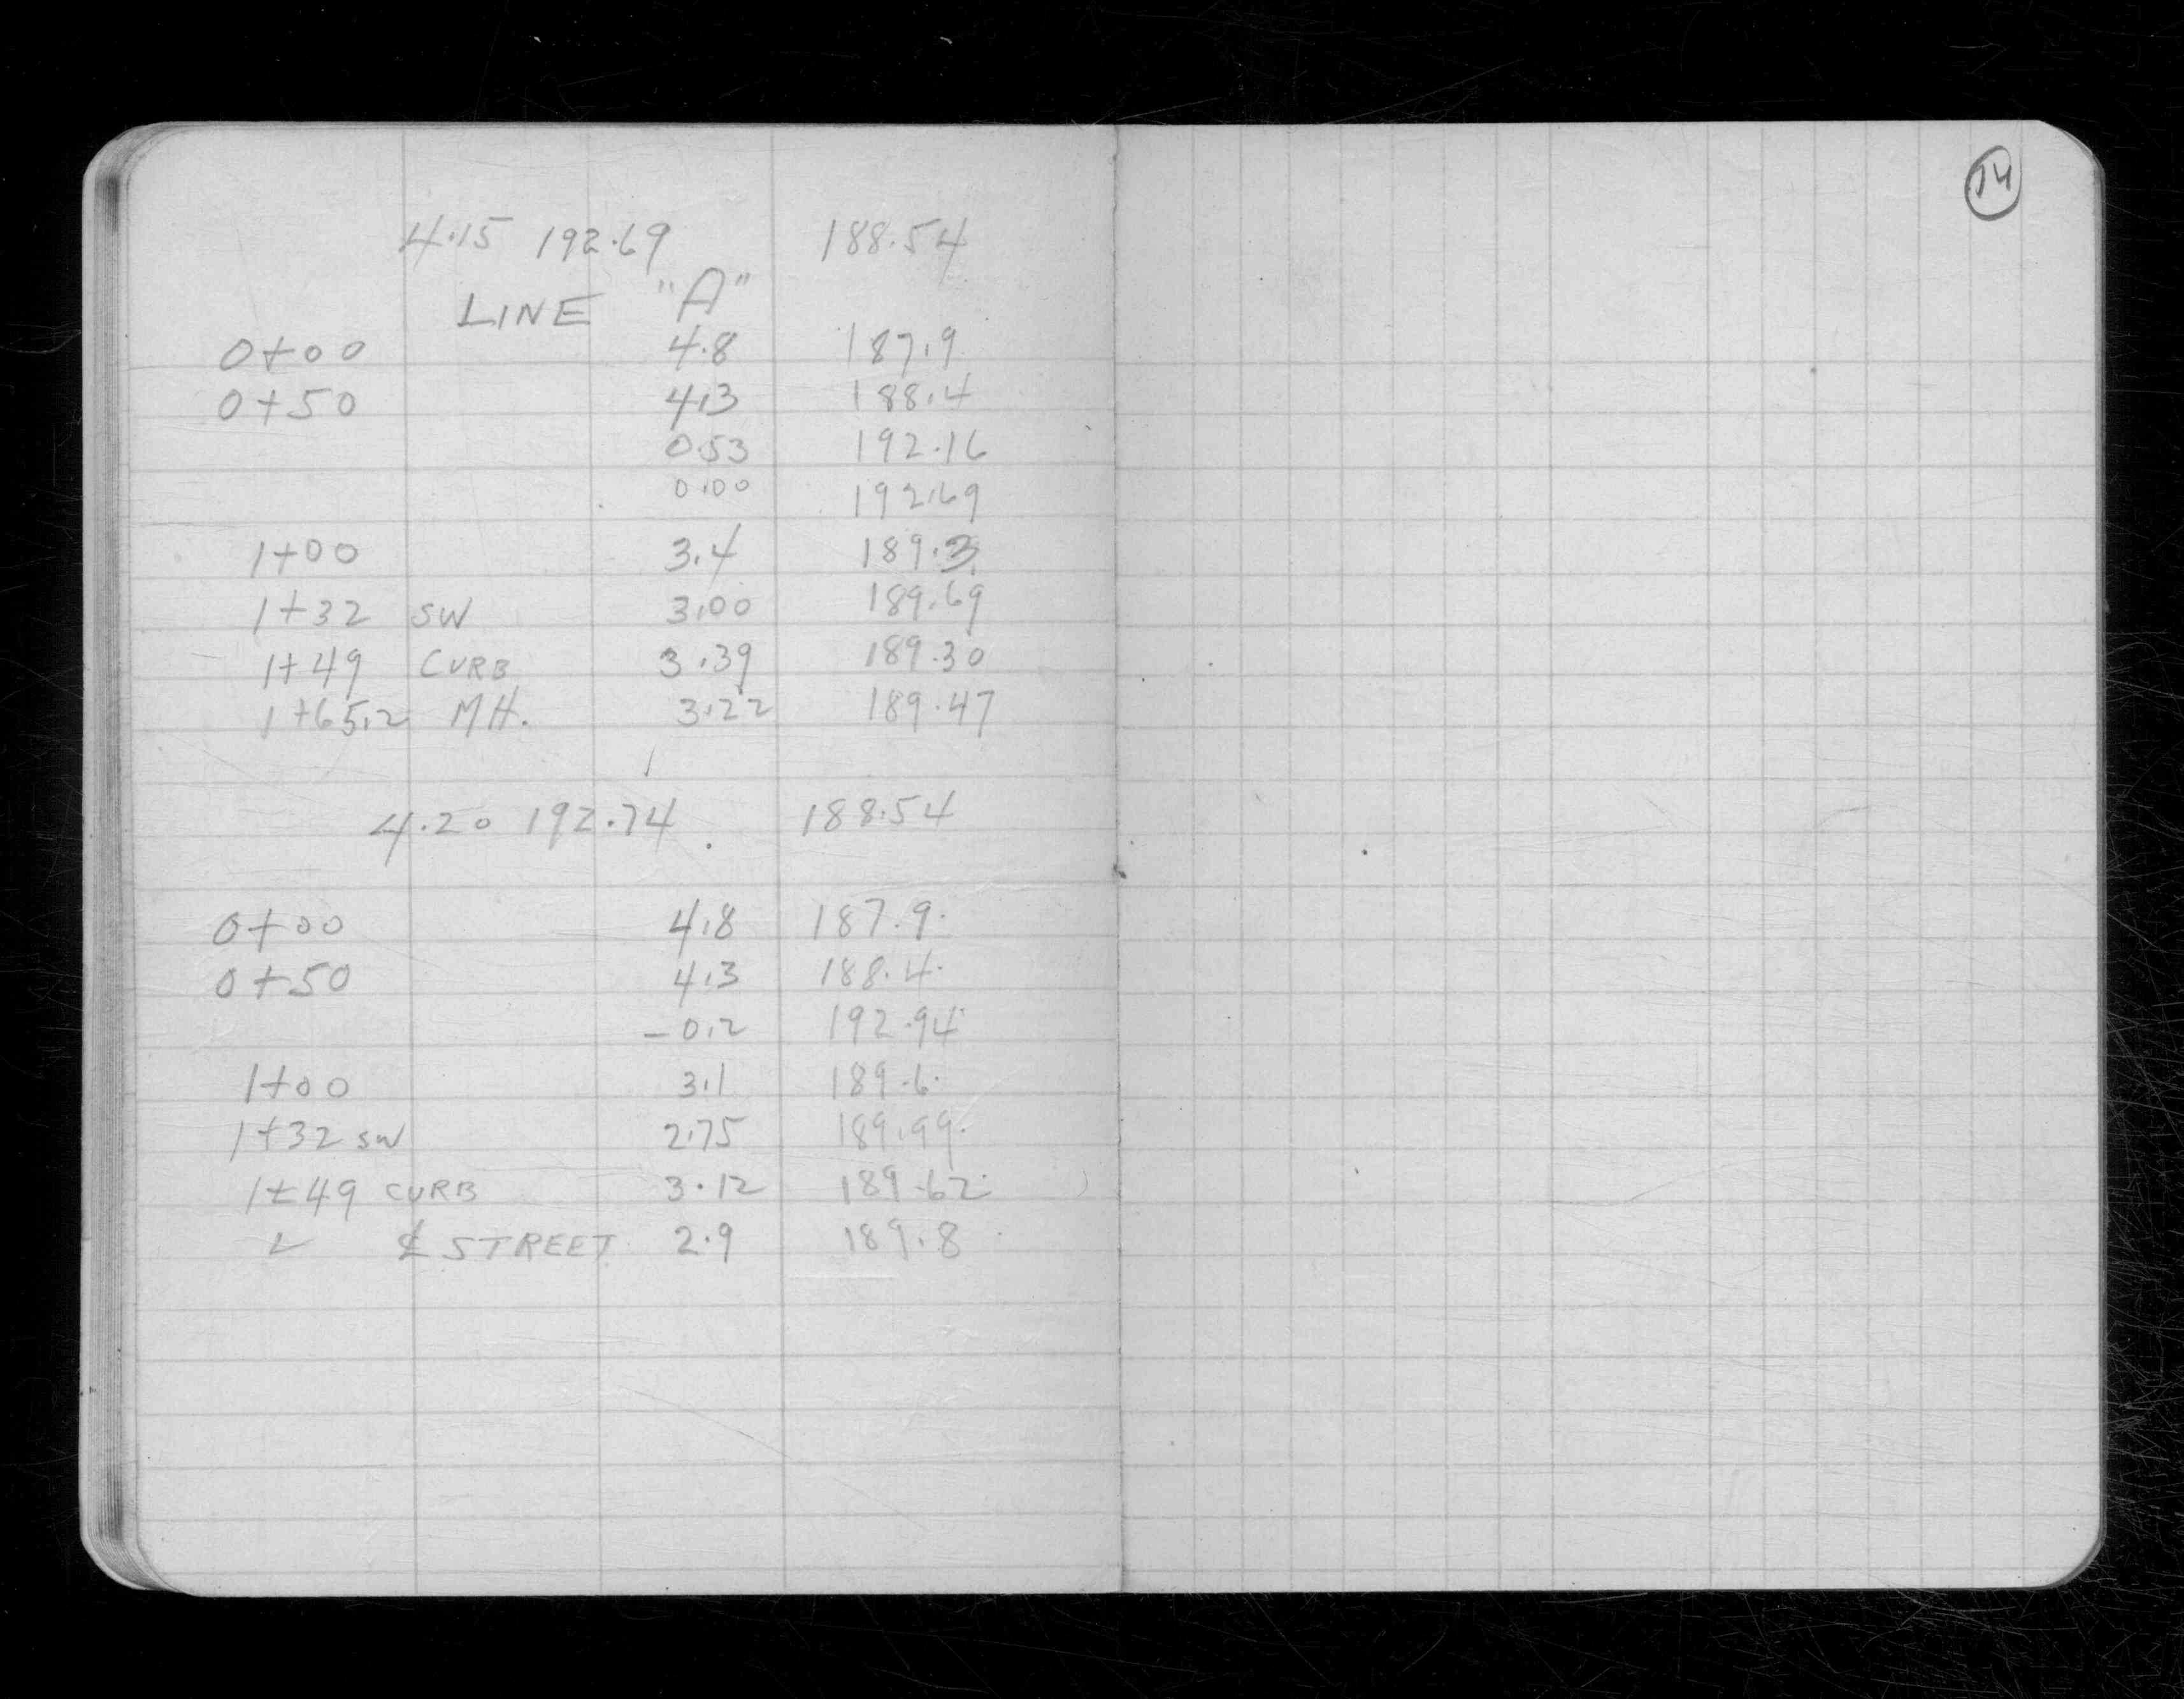 14
4.15 192.69 188.54
LINE "A"
0+00 4.8 187.9
0+50 4.3 188.4
0.53 192.16
0.00 192.69
1+00 3.4 189.3
1+32 SW 3.00 189.69
1+49 CURB 3.39 189.30
1+65.2 MH. 3.22 189.47
4.20 192.74 188.54
0+00 4.8 187.9
0+50 4.3 188.4
-0.2 192.94
1+00 3.1 189.6
1+32 SW 2.75 189.99
1+49 CURB 3.12 189.62
℄ STREET 2.9 189.8